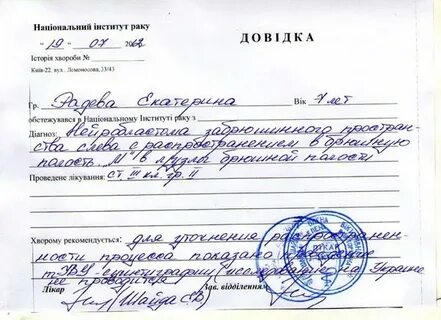 Національний інститут раку
"19" 07
ДОВІДКА
Історія хвороби №
Київ-22. вул. Ломоносова, 33/43
Гр. Радева Екатерина Вік 7 лет
обстежувався в Національному Інституті раку з
Діагноз: Нейробластома забрюшинного простран-
ства слева с распространением в брюшную
полость. в л/узлы брюшной полости
Проведене лікування: ст. III кл. гр. II
Хворому рекомендується: для уточнения распространен-
ности процесса показано проведение
сцинтиграфии (исследование на Украине
не проводится
Лікар Зав. відділенням